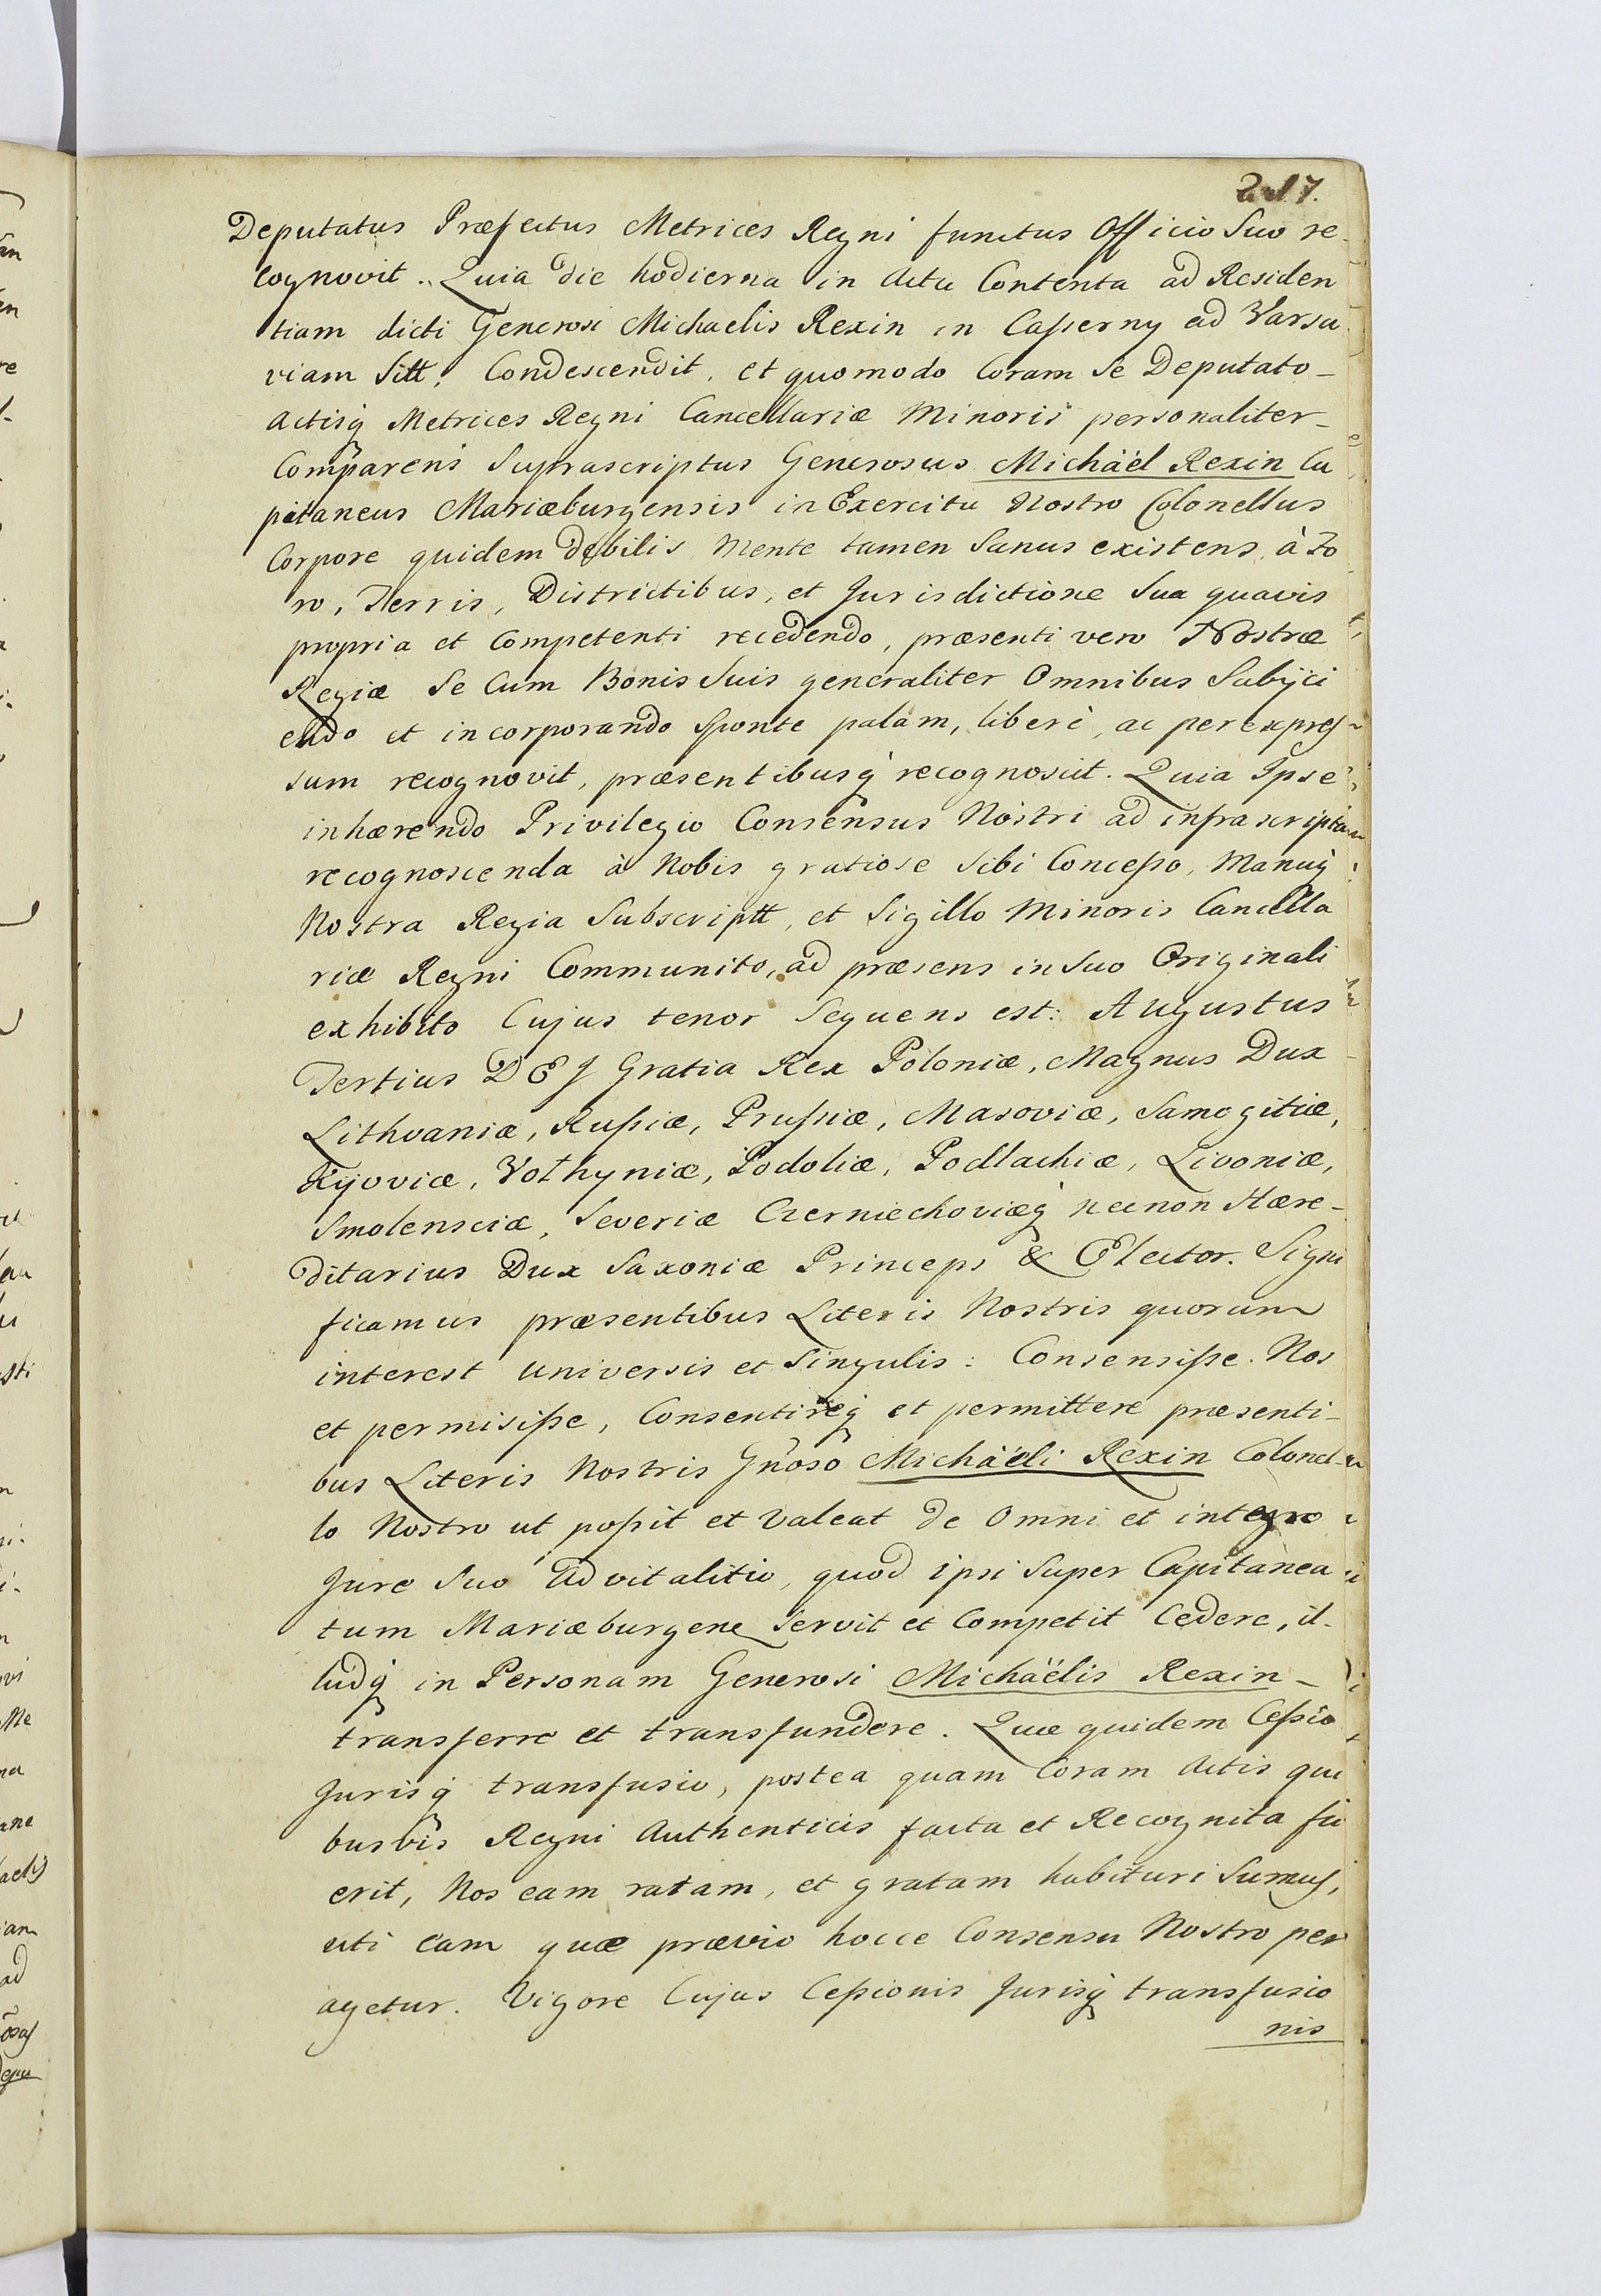 217.
Deputatus Præfectus Metrices Regni functus Officio Suo re-
cognovit. Quia die hodierna in Actu Contenta ad Residen
tiam dicti Generosi Michaelis Rexin in Casserny ad Varsa
viam Sitt, Condescendit, et quomodo Coram Se Deputato-
Actisq Metrices Regni Cancellariæ Minoris personaliter-
Comparens Suprascriptus Generosus Michäel Rexin Ca
pitaneus Mariæburgensis in Exercitu Nostro Colonellus
Corpore quidem debilis Mente tamen Sanus existens, à Fo
ro, Terris, Districtibus, et Jurisdictione Sua quavis
propria et Competenti recedendo, præsenti vero Nostræ
Regiæ Se Cum Bonis Suis generaliter Omnibus Subijci
endo et incorporando Sponte palam, liberè, ac per expres
sum recognovit, præsentibusq recognoscit. Quia Ipse
inhærendo Privilegio Consensus Nostri ad infrascripta
recognoscenda à Nobis gratiose Sibi Concesso, Manuq
Nostra Regia Subscriptt, et Sigillo Minoris Cancella
riæ Regni Communito, ad præsens in Suo Originali
exhibito Cujus tenor Sequens est: Augustus
Tertius DEJ Gratia Rex Poloniæ, Magnus Dux
Lithvaniæ, Russiæ, Prussiæ, Masoviæ, Samogitiæ,
Kijoviæ, Volhyniæ, Podoliæ, Podlachiæ, Livoniæ,
Smolensciæ, Severiæ Czerniechoviæq necnon Hære-
ditarius Dux Saxoniæ Princeps & Elector. Signi
ficamus præsentibus Literis Nostris quorum
interest universis et Singulis: Consensisse Nos
et permisisse, Consentireq et permittere præsenti-
bus Literis Nostris Gnoso Michäeli Rexin Colonel-
lo Nostro ut possit et valeat de Omni et integro
Jure Suo Advitalitio, quod ipsi Super Capitanea
tum Mariæburgene Servit et Competit Cedere, il-
ludq in Personam Generosi Michäelis Rexin-
transferre et transfundere. Quæ quidem Cessio
Jurisq transfusio, postea quam Coram Actis qui
busvis Regni Authenticis facta et Recognita fu
erit, Nos eam ratam, et gratam habituri Sumus,
uti Eam quæ prævio hocce Consensu Nostro per
agetur. Vigore Cujus Cessionis Jurisq transfusio
nis